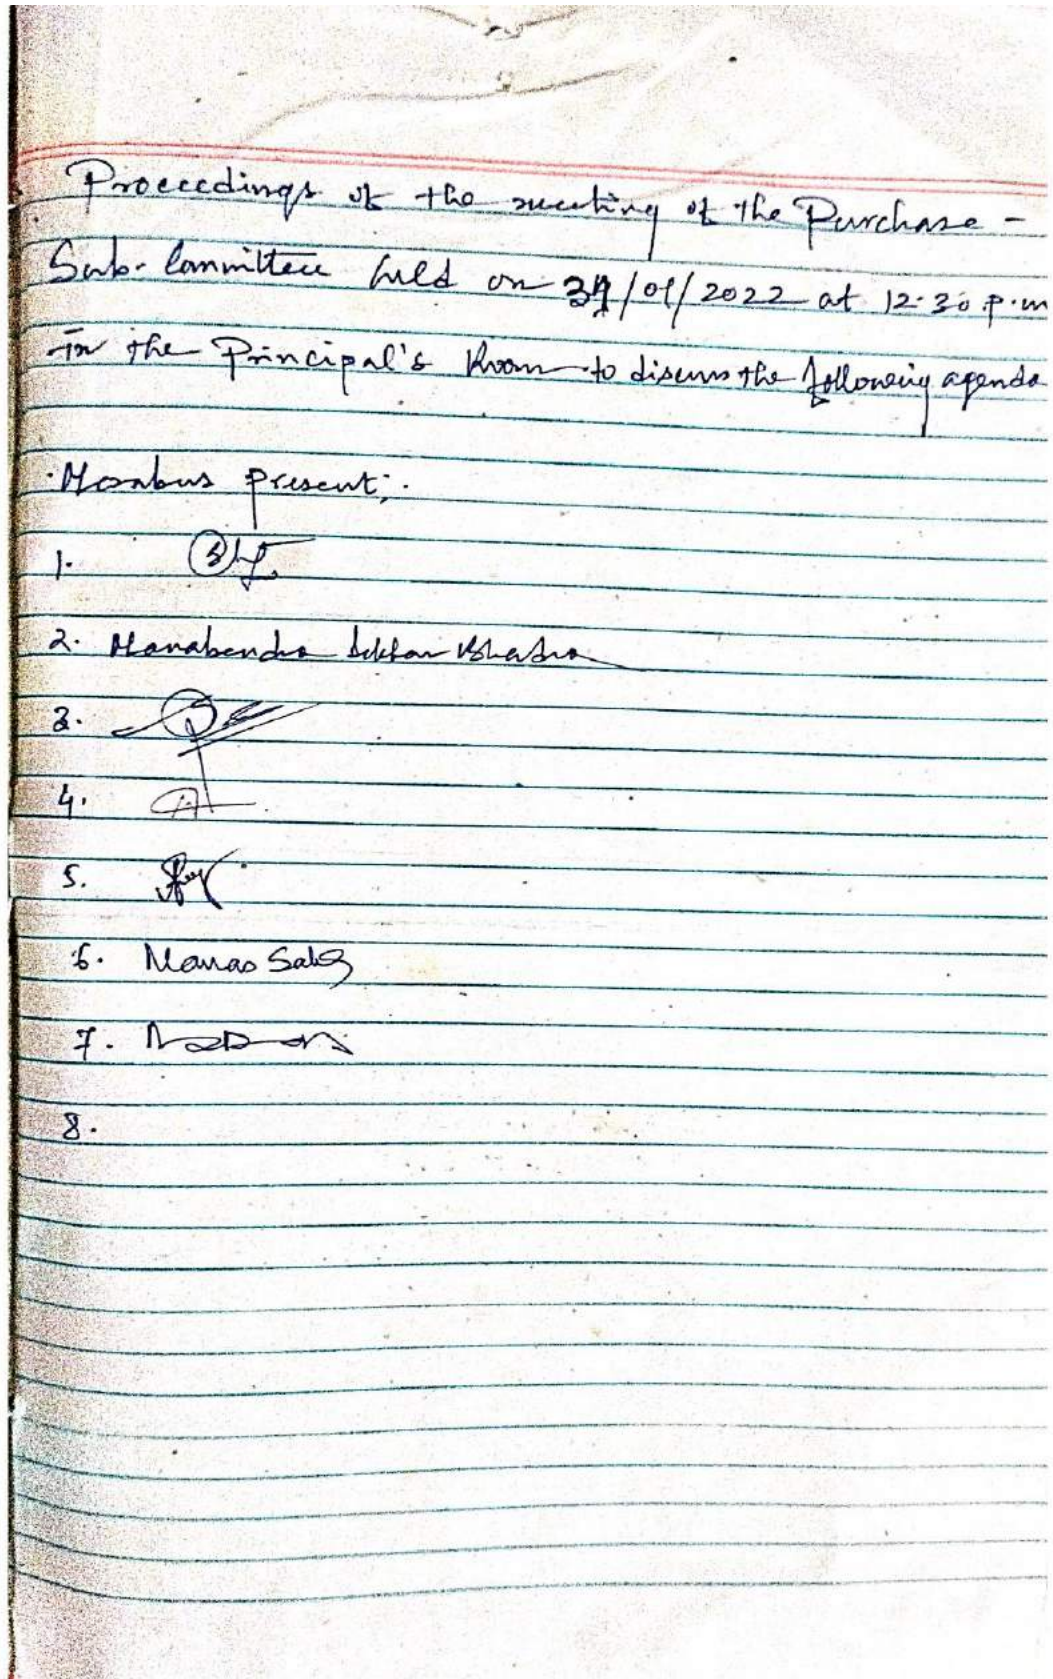 Proceedings of the meeting of the Purchase -
Sub-Committee held on 31/01/2022 at 12.30 p.m
in the Principal's Room to discuss the following agenda
Members present:
1.
2. Manabendra Sekhar Bhadra
3.
4.
5.
6. Manas
7.
8.